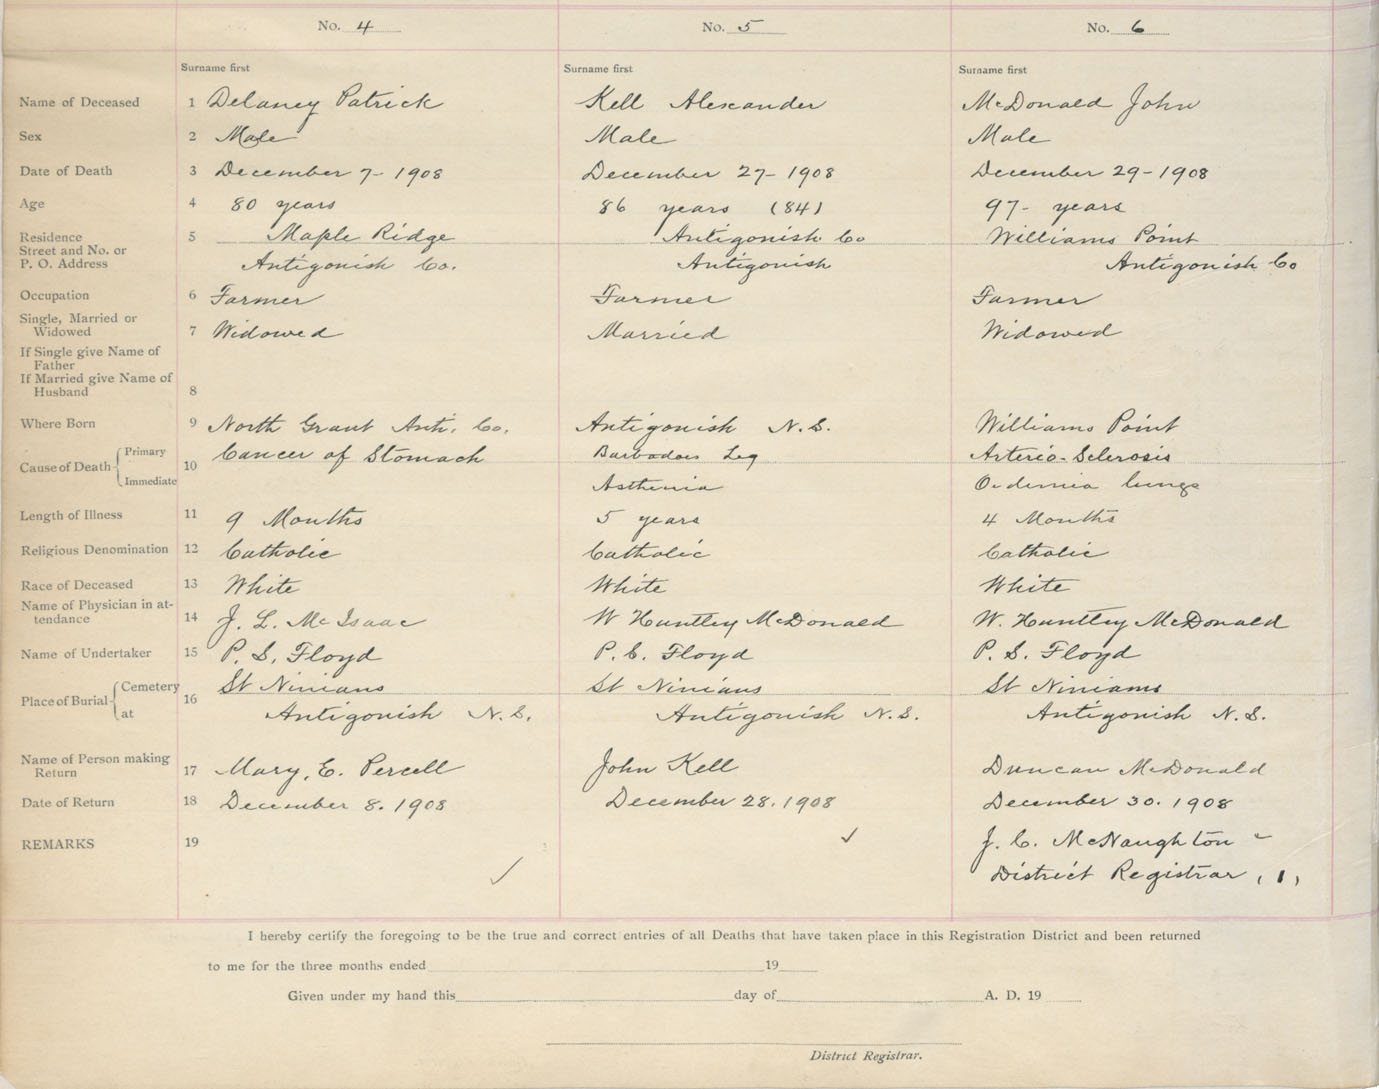 No. 4
No. 5
No. 6
Surname first
Surname first
Surname first
Name of Deceased 1 Delaney Patrick
Kell Alexander
McDonald John
Sex 2 Male
Male
Male
Date of Death 3 December 7- 1908
December 27- 1908
December 29- 1908
Age 4 80 years
86 years (84)
97- years
Residence
Street and No. or
P. O. Address
5 Maple Ridge
Antigonish Co.
Antigonish Co
Antigonish
Williams Point
Antigonish Co
Occupation 6 Farmer
Farmer
Farmer
Single, Married or
Widowed
7 Widowed
Married
Widowed
If Single give Name of
Father
If Married give Name of
Husband
8
Where Born 9 North Grant Anti. Co.
Antigonish N.S.
Williams Point
Cause of Death Primary
Immediate
10 Cancer of Stomach
Barbadoes Leg
Asthenia
Arterio-Sclerosis
Oedemia lungs
Length of Illness 11 9 Months
5 years
4 Months
Religious Denomination 12 Catholic
Catholic
Catholic
Race of Deceased 13 White
White
White
Name of Physician in at-
tendance
14 J. L. McIsaac
W Huntley McDonald
W. Huntley McDonald
Name of Undertaker 15 P. S. Floyd
P. S. Floyd
P. S. Floyd
Place of Burial Cemetery
at
16 St Ninians
Antigonish N.S.
St Ninians
Antigonish N.S.
St Ninians
Antigonish N.S.
Name of Person making
Return
17 Mary, E. Percell
John Kell
Duncan McDonald
Date of Return 18 December 8. 1908
December 28. 1908
December 30. 1908
REMARKS 19
J. C. McNaughton
District Registrar (1)
I hereby certify the foregoing to be the true and correct entries of all Deaths that have taken place in this Registration District and been returned
to me for the three months ended 19
Given under my hand this day of A. D. 19
District Registrar.